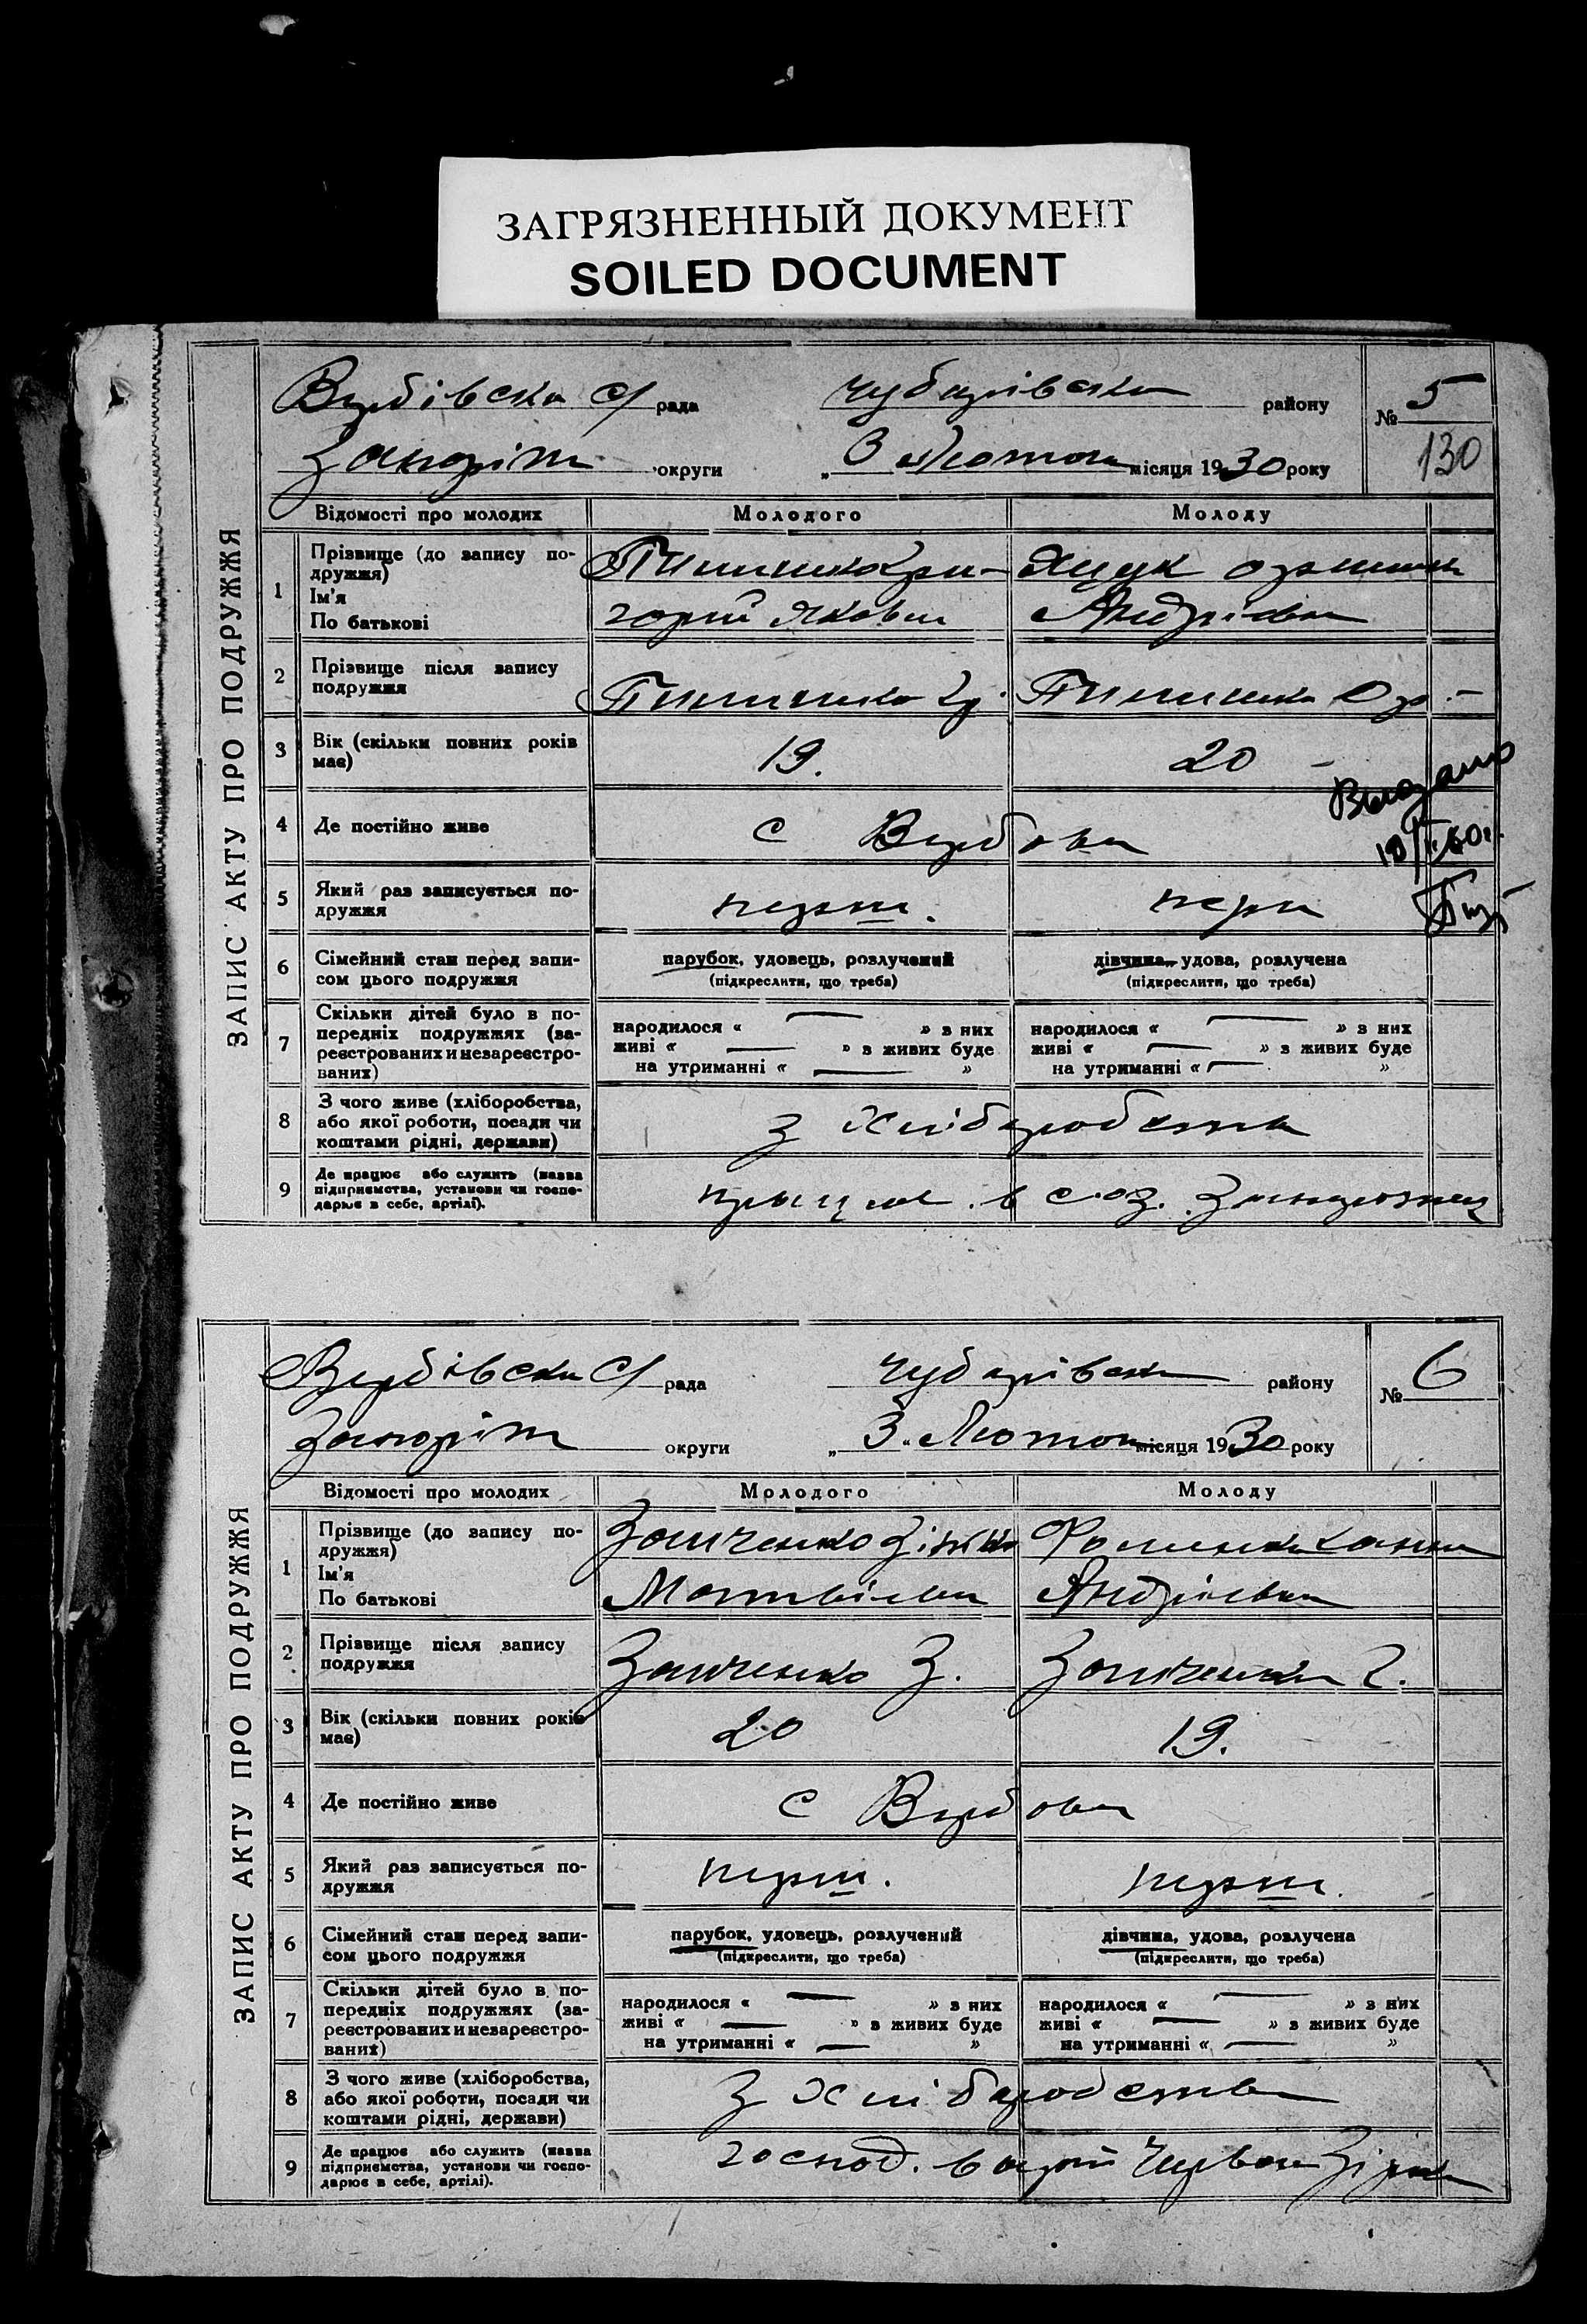 ЗАГРЯЗНЕННЫЙ ДОКУМЕНТ
SOILED DOCUMENT
ЗАПИС АКТУ ПРО ПОДРУЖЖЯ
Вербівська с/рада Чубарівськ району № 5
Запоріж округи „3“ Лютого місяця 1930 року 130
Відомості про молодих Молодого Молоду
1 Прізвище (до запису по-
дружжя)
Ім'я
По батькові
Гри- Яцук
горій Яков Андріівна
2 Прізвище після запису
подружжя
Гр.
3 Вік (скільки повних років
має) 19. 20
Выдано
4 Де постійно живе с Вербова
5 Який раз записується по-
дружжя перш. перш
6 Сімейний стан перед запи-
сом цього подружжя
парубок, удовець, розлучений дівчина, удова, розлучена
(підкреслити, що треба) (підкреслити, що треба)
7 Скільки дітей було в по-
передніх подружжях (за-
реєстрованих и незареєстро-
ваних)
народилося « — » з них народилося « — » з них
живі « — » з живих буде живі « — » з живих буде
на утриманні « — » на утриманні « — »
8 З чого живе (хліборобства,
або якої роботи, посади чи
коштами рідні, держави)
З Хліборобства
9 Де працює або служить (назва
підприємства, установи чи госпо-
дарює в себе, артілі).
працює в соз.
ЗАПИС АКТУ ПРО ПОДРУЖЖЯ
Вербівська с/рада Чубарівськ району № 6
Запоріж округи „3“ Лютого місяця 1930 року
Відомості про молодих Молодого Молоду
1 Прізвище (до запису по-
дружжя)
Ім'я
По батькові
Заиченко Фоменко Ханна
Матвієви Андріівна
2 Прізвище після запису
подружжя
Заиченко З. Заиченко Г.
3 Вік (скільки повних років
має) 20 19.
4 Де постійно живе с Вербова
5 Який раз записується по-
дружжя перш. перш.
6 Сімейний стан перед запи-
сом цього подружжя
парубок, удовець, розлучений дівчина, удова, розлучена
(підкреслити, що треба) (підкреслити, що треба)
7 Скільки дітей було в по-
передніх подружжях (за-
реєстрованих и незареєстро-
ваних)
народилося « — » з них народилося « — » з них
живі « — » з живих буде живі « — » з живих буде
на утриманні « — » на утриманні « — »
8 З чого живе (хліборобства,
або якої роботи, посади чи
коштами рідні, держави)
З Хліборобства
9 Де працює або служить (назва
підприємства, установи чи госпо-
дарює в себе, артілі).
господ. в арт Червон Зірка